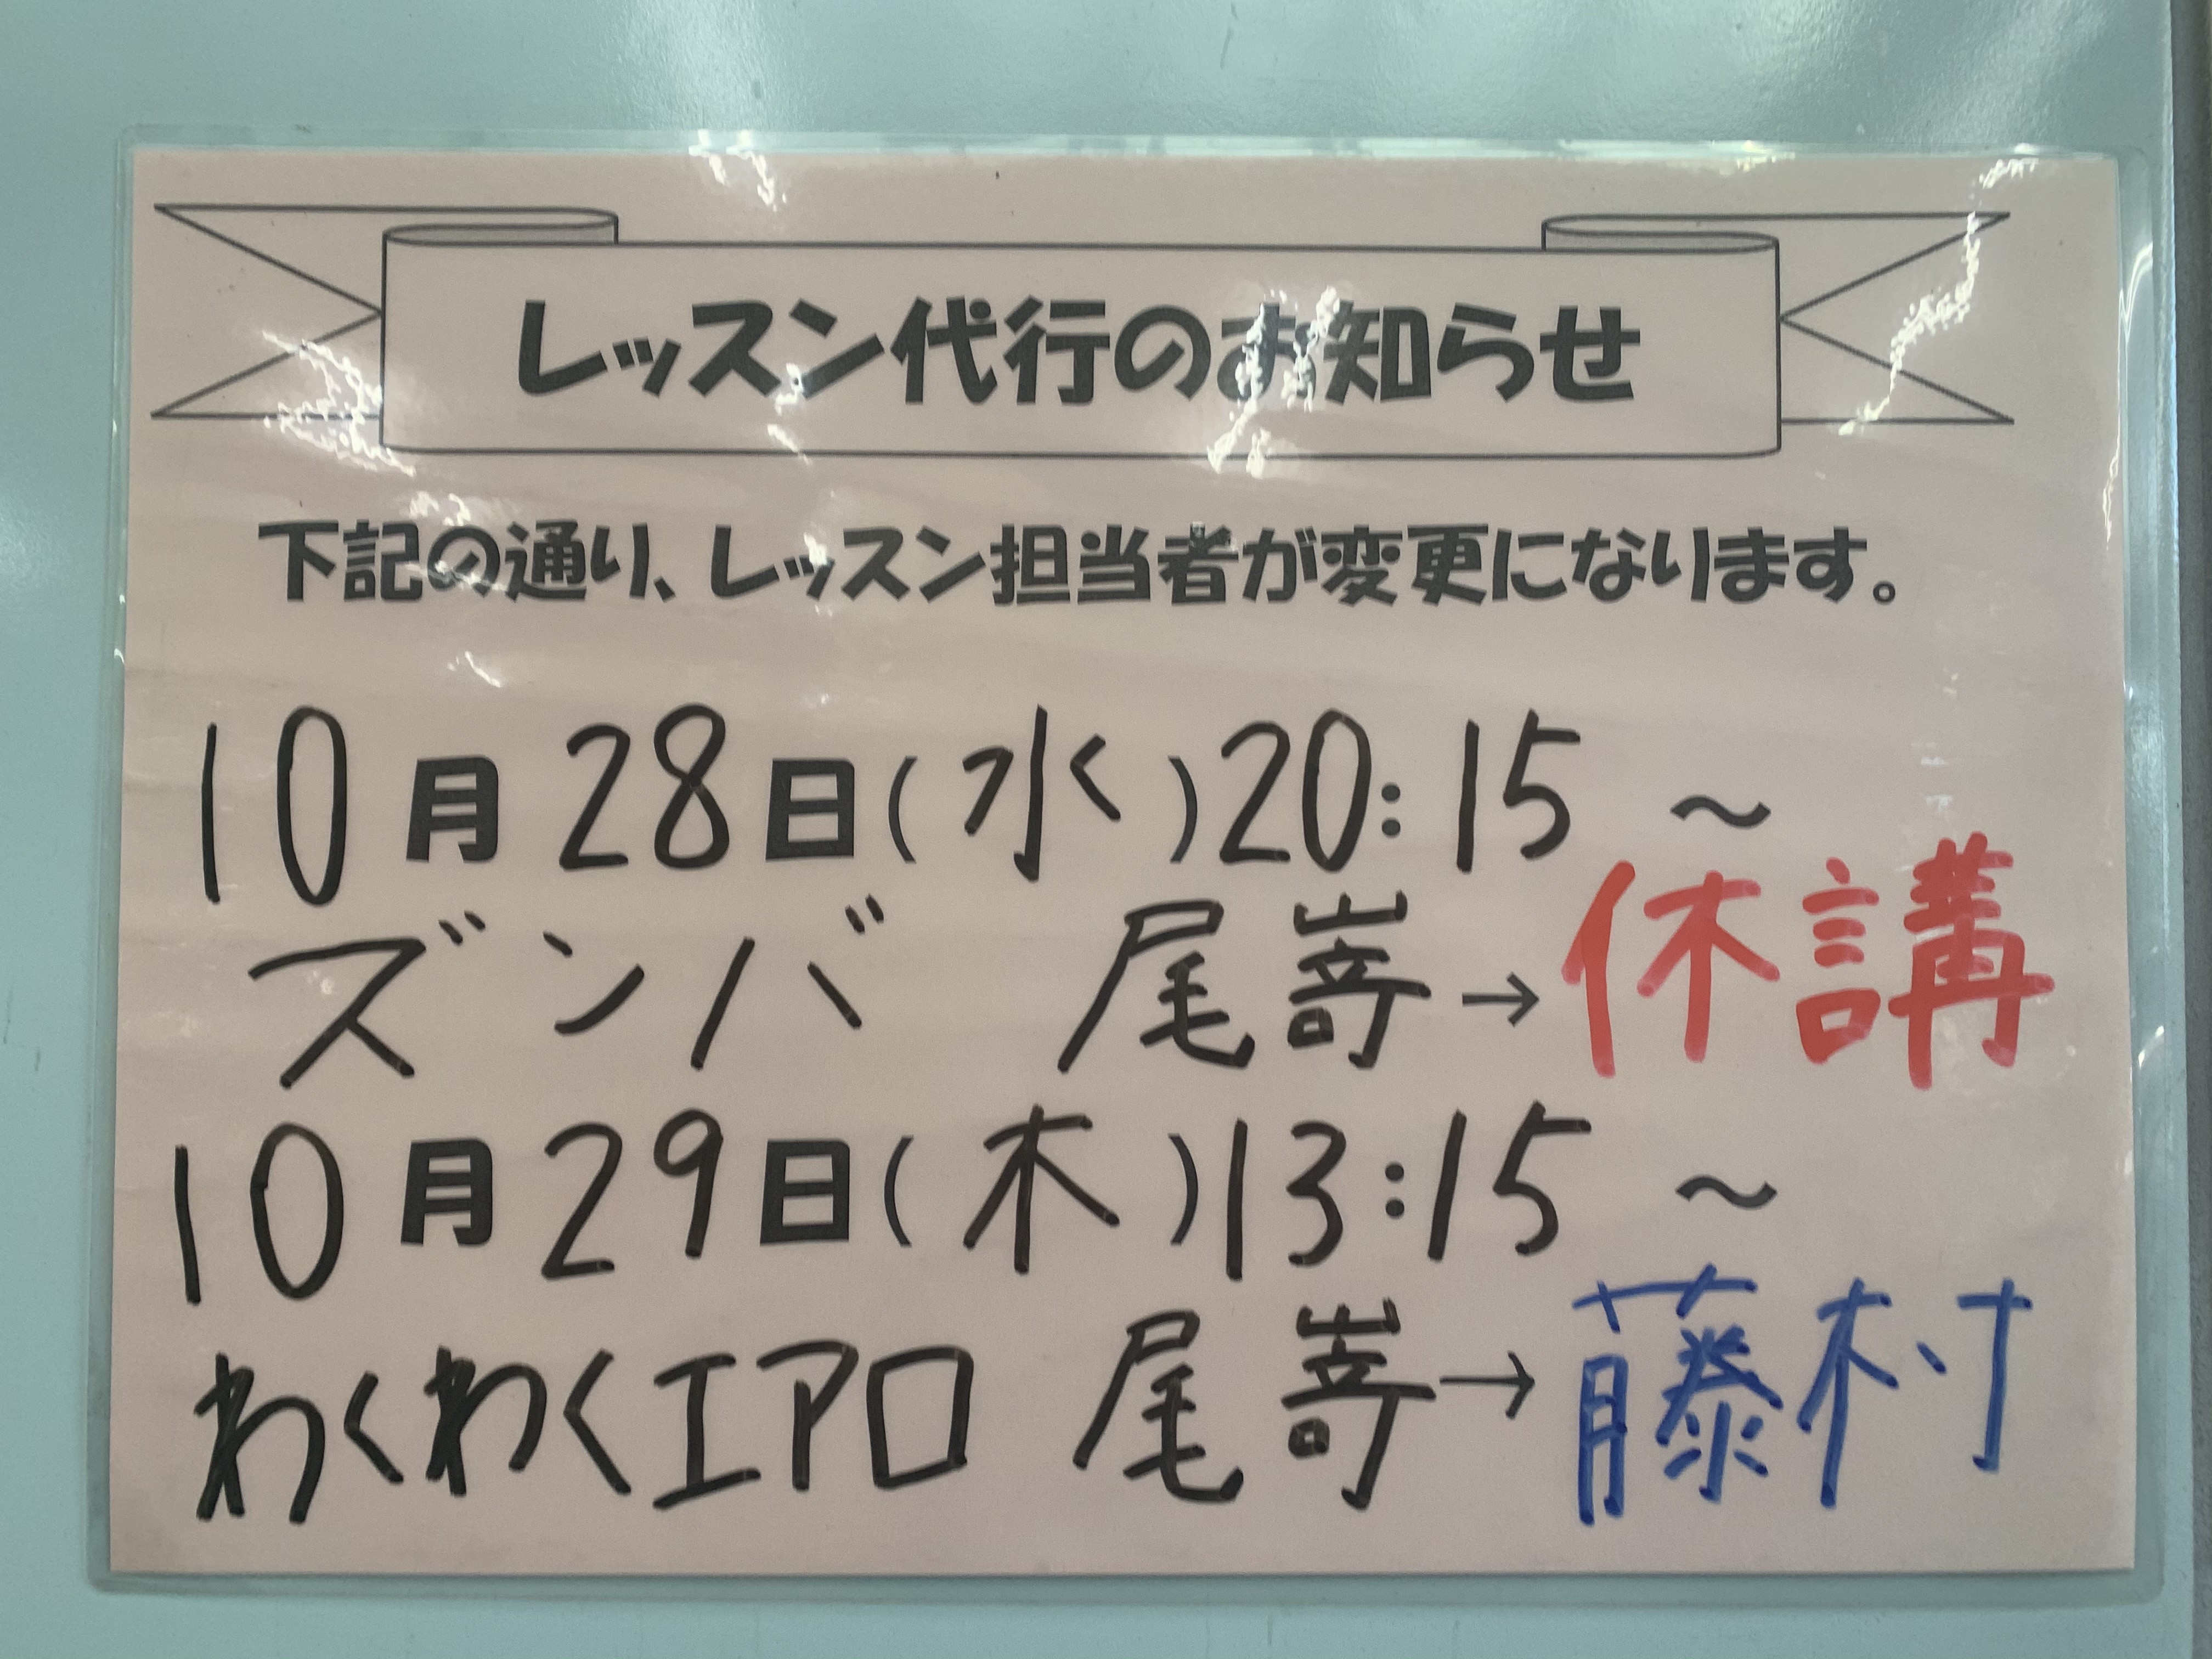 レッスン代行のお知らせ
下記の通り、レッスン担当者が変更になります。
10月28日(水)20:15～
ズンバ 尾嵜→休講
10月29日(木)13:15～
わくわくエアロ 尾嵜→藤村